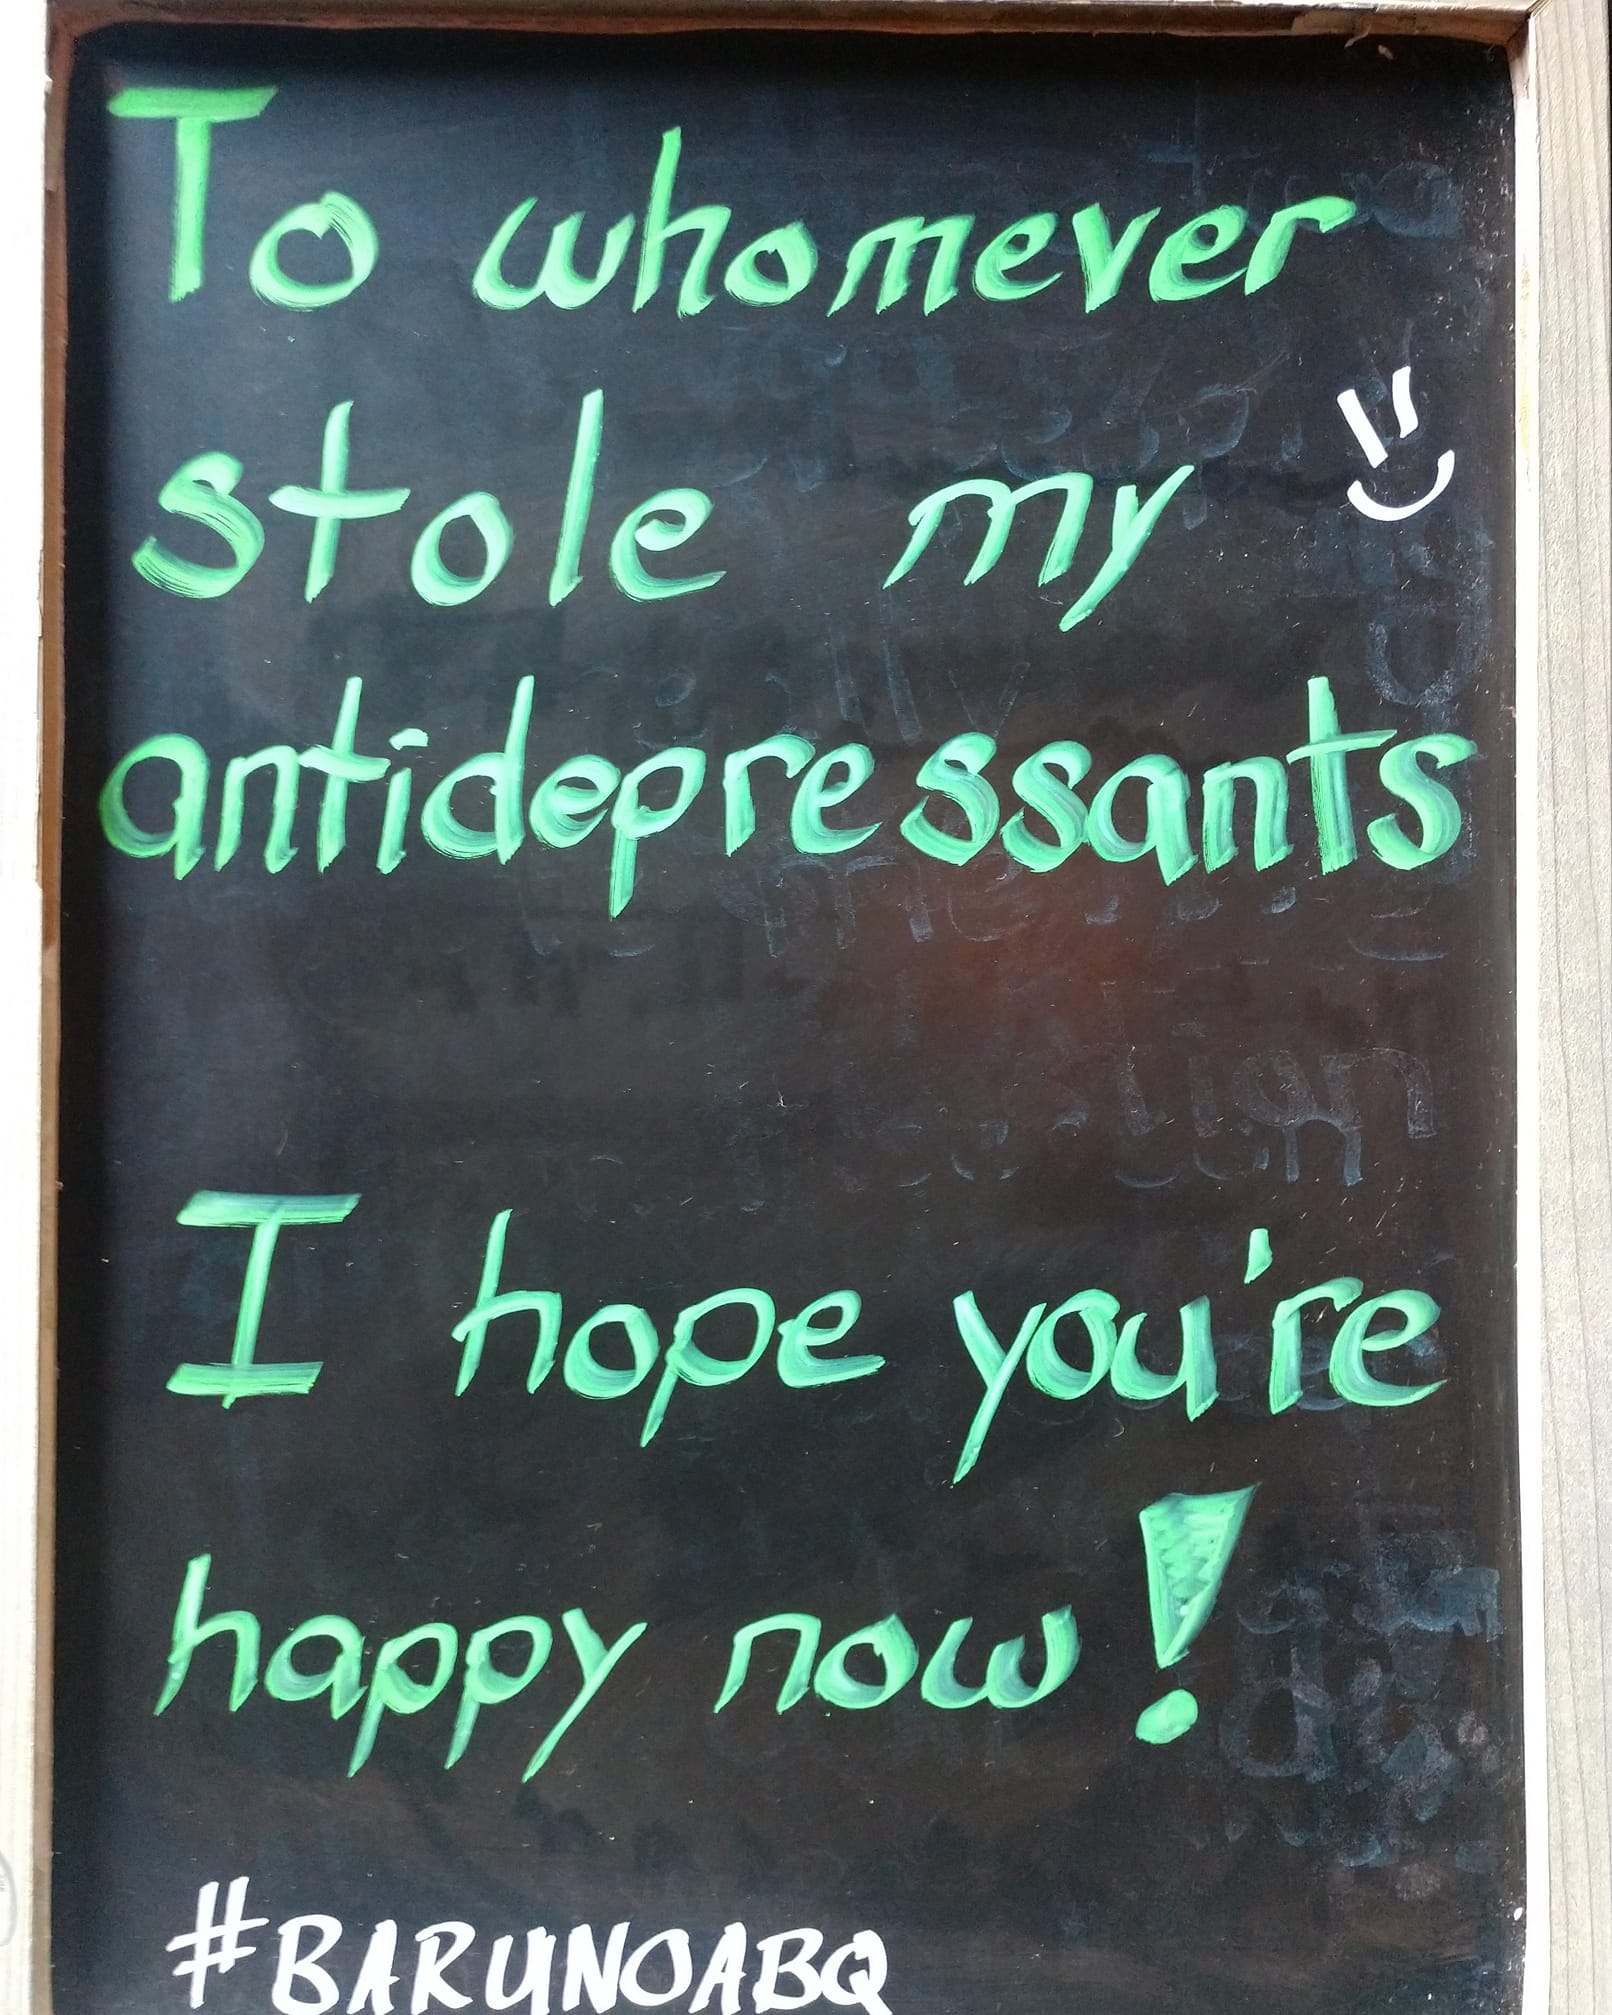 To whomever
stole my
antidepressants
I hope you're
happy now!
#BARUNOABQ